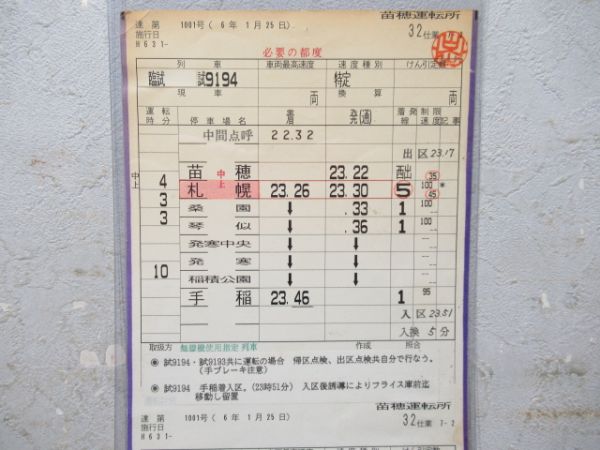 苗穂運転所
達第 1001号( 6年 1月25日)
施行日
H631-
32仕業
必要の都度
列車 車両最高速度 速度種別 けん引定数
臨試 試9194 特定
現車 両 換算 両
運転時分 停車場名 着 発(通) 着発線 制限速度 記事
中間点呼 22.32
出区 23.17
苗穂 23.22 出
中上 4 中上 35
札幌 23.26 23.30 5 100 45 *
3
桑園 ↓ .33 1 100
3
琴似 ↓ .36 1 100
発寒中央 ↓ ↓
発寒 ↓ ↓
10
稲積公園 ↓ ↓
手稲 23.46 1 95
入区 23.51
入換 5分
取扱方 無線機使用指定列車 作成 照合
◉ 試9194・試9193共に運転の場合 帰区点検、出区点検共自分で行なう。
(手ブレーキ注意)
◉ 試9194 手稲着入区。(23時51分) 入区後誘導によりフライス庫前迄
移動し留置
苗穂運転所
達第 1001号( 6年 1月25日)
施行日
H631-
32仕業 7-2